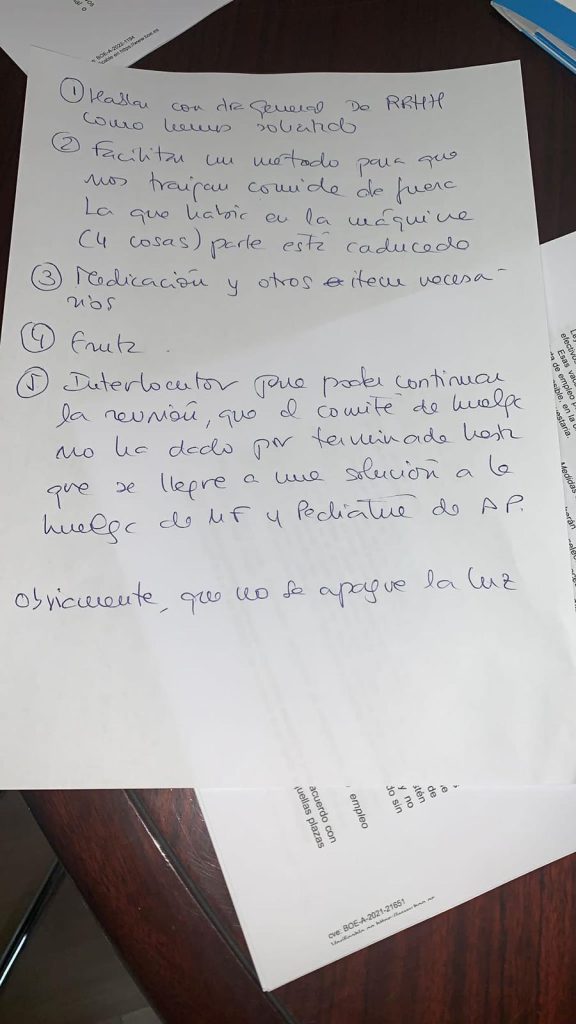 cve: BOE-A-2022-1194
① Hablar con dra General De RRHH
como hemos solicitado
② Facilitar un método para que
nos traigan comida de fuera
La que había en la máquina
(4 cosas) parte está caducado
③ Medicación y otros item necesa-
rios
④ Fruta.
⑤ Interlocutor para poder continuar
la reunión, que el comité de huelga
no ha dado por terminada hasta
que se llegue a una solución a la
huelga de MF y Pediatría de AP.
Obviamente, que no se apague la luz
efectivo
Esas va
de empleo
en la
estaria.
Medidas
acuerdo con
uellas plazas
empleo
do sin
y no
estén
de
cve: BOE-A-2021-21651